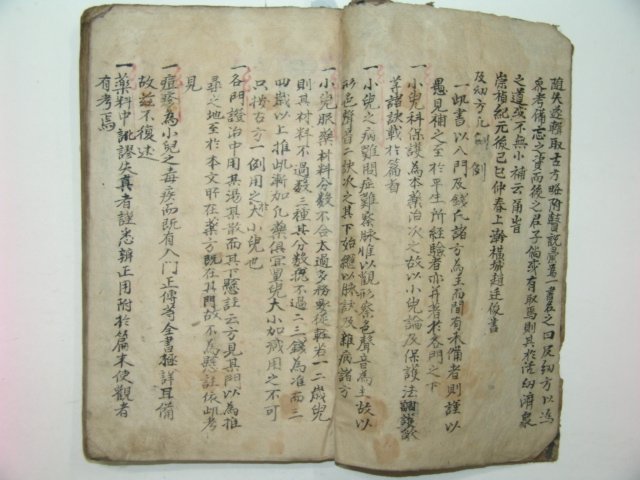 隨失遂輯取古方略附瞽說彙爲一書名之曰及幼方以爲
衆考備忘之資而後之君子倘或有取焉則其於濟幼濟衆
之道或不無小補云甭旹
崇禎紀元後己巳仲春上澣橫城趙廷俊書
及幼方凡例
一此書以入門及錢氏諸方爲主而間有未備者則謹以
愚見補之至於平生所經驗者亦幷著於各門之下
一小兒科保護爲本藥治次之故以小兒論及保護法調護歌
等諸訣載於篇首
一小兒之病難問症難察脉惟以觀形察色聲音爲主故以
形色聲音一訣次之其下始繼以脉訣及雜病諸方
一小兒服藥材料分數不合太過多務要從輕若一二歲兒
則其材料不過數三種其分數旣不過二三錢爲准而三
四歲以上推此漸加凡藥俱宜量兒大小加减用之不可
只按古方一例用之大小兒也
一各門證治中用某湯某散而其下懸註云方見某門以爲推
尋之地至於本文所在藥方旣在其門故不爲懸註依此考
見
一痘疹爲小兒之毒疾而旣有入門正傳等全書極詳且備
故玆不復述
一藥料中訛謬失眞者謹悉辨正用附於篇末使觀者
有考焉